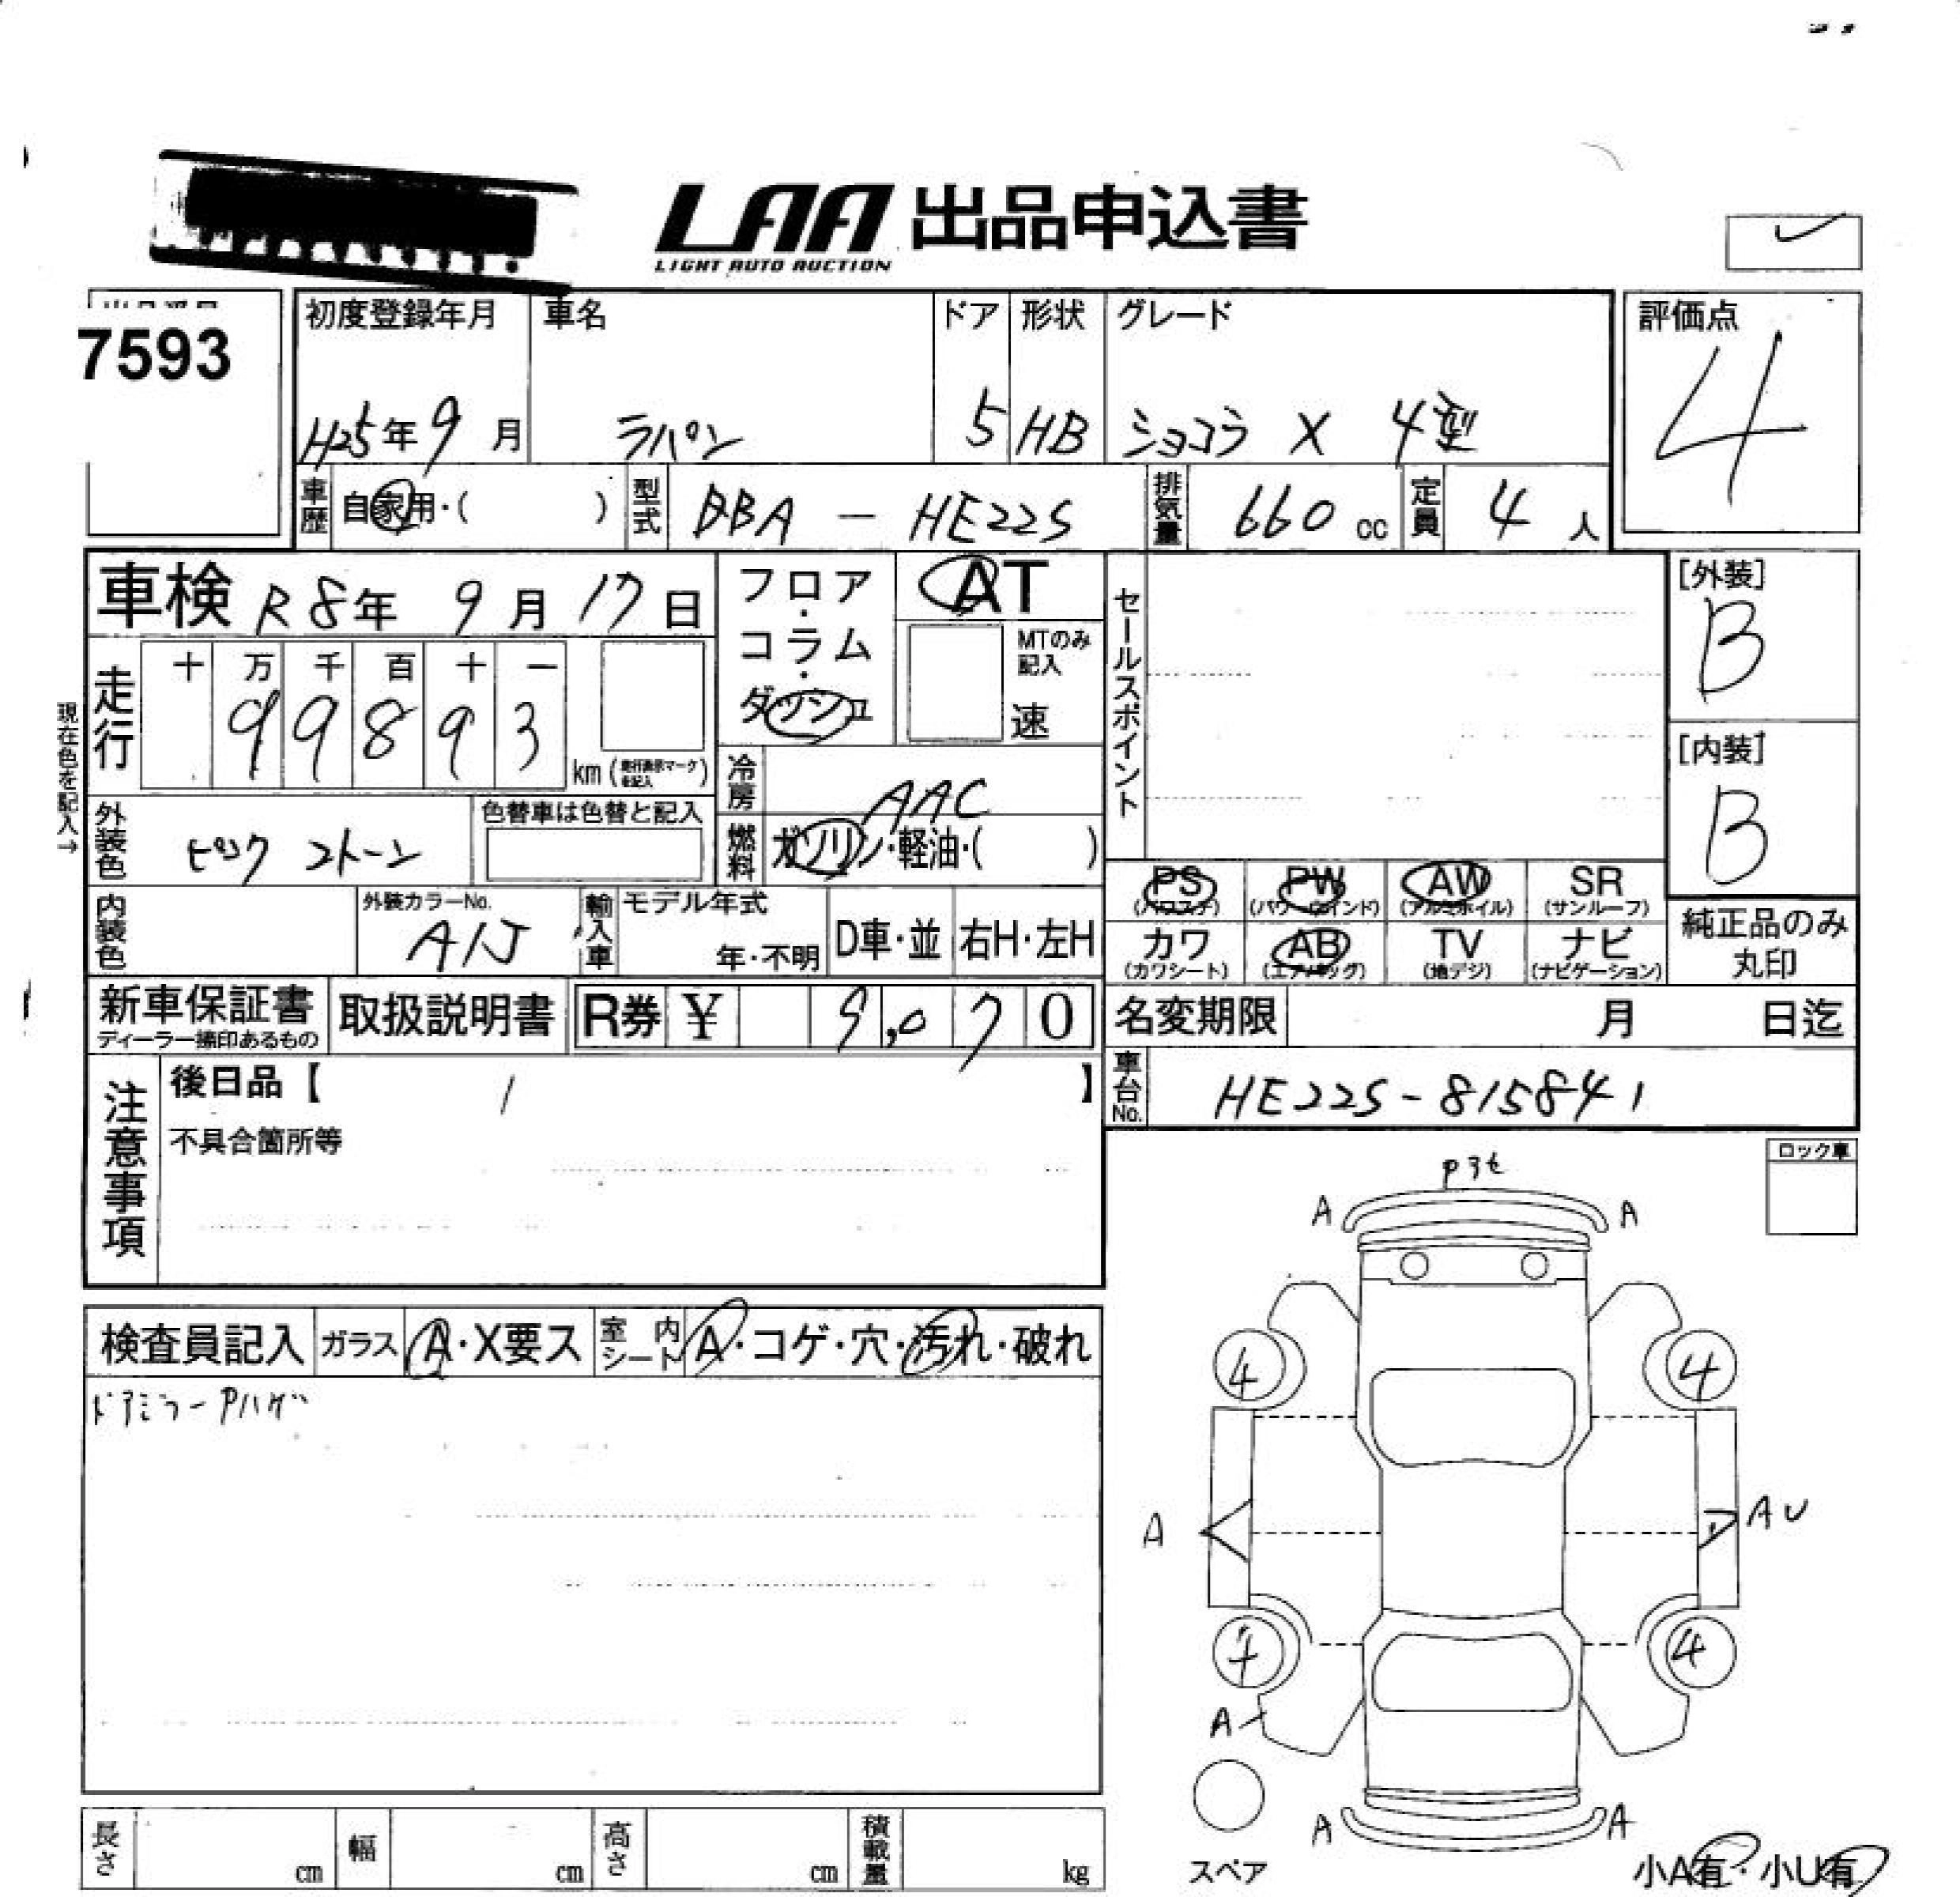 LAA 出品申込書
LIGHT AUTO AUCTION
7593
初度登録年月 車名 ドア 形状 グレード 評価点
H25年9月 ラパン 5 HB ショコラ X 4型 4
車歴 自家用・( ) 型式 DBA - HE22S 排気量 660 cc 定員 4 人
車検 R8年 9月 17日
フロア・コラム・ダッシュ
AT
MTのみ記入
速
セールスポイント
[外装]
B
[内装]
B
現在色を記入→
走行 十 万 千 百 十 一
99893 km (走行表示マークを記入)
冷房 AAC
外装色 ピンク 2トーン 色替車は色替と記入
燃料 ガソリン・軽油・( )
PS (パワステ) PW (パワーウインド) AW (アルミホイル) SR (サンルーフ)
カワ (カワシート) AB (エアバッグ) TV (地デジ) ナビ (ナビゲーション)
純正品のみ丸印
内装色 外装カラーNo. A1J 輸入車 モデル年式 年・不明 D車・並 右H・左H
新車保証書 ディーラー捺印あるもの 取扱説明書 R券 ¥ 9,070
名変期限 月 日迄
車台No. HE22S-815841
注意事項 後日品【 】
不具合箇所等
ロック車
A A
検査員記入 ガラス A・X要ス 室内シート A・コゲ・穴・汚れ・破れ
ドアミラーPハゲ
4 4
A AU
4 4
A
A A
スペア
小A有・小U有
長さ cm 幅 cm 高さ cm 積載量 kg